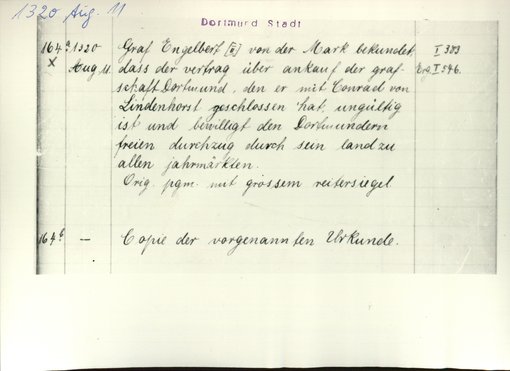 1320 Aug. 11
Dortmund Stadt
164a 1320 Graf Engelbert [II] von der Mark bekundet, I 383
X Aug 11. dass der vertrag über ankauf der graf- Erg. I 546.
schaft Dortmund, den er mit Conrad von
Lindenhorst geschlossen hat, ungültig
ist und bewilligt den Dortmundern
freien durchzug durch sein land zu
allen jahrmärkten.
Orig. pgm. mit grossem reitersiegel
164b — Copie der vorgenannten Urkunde.